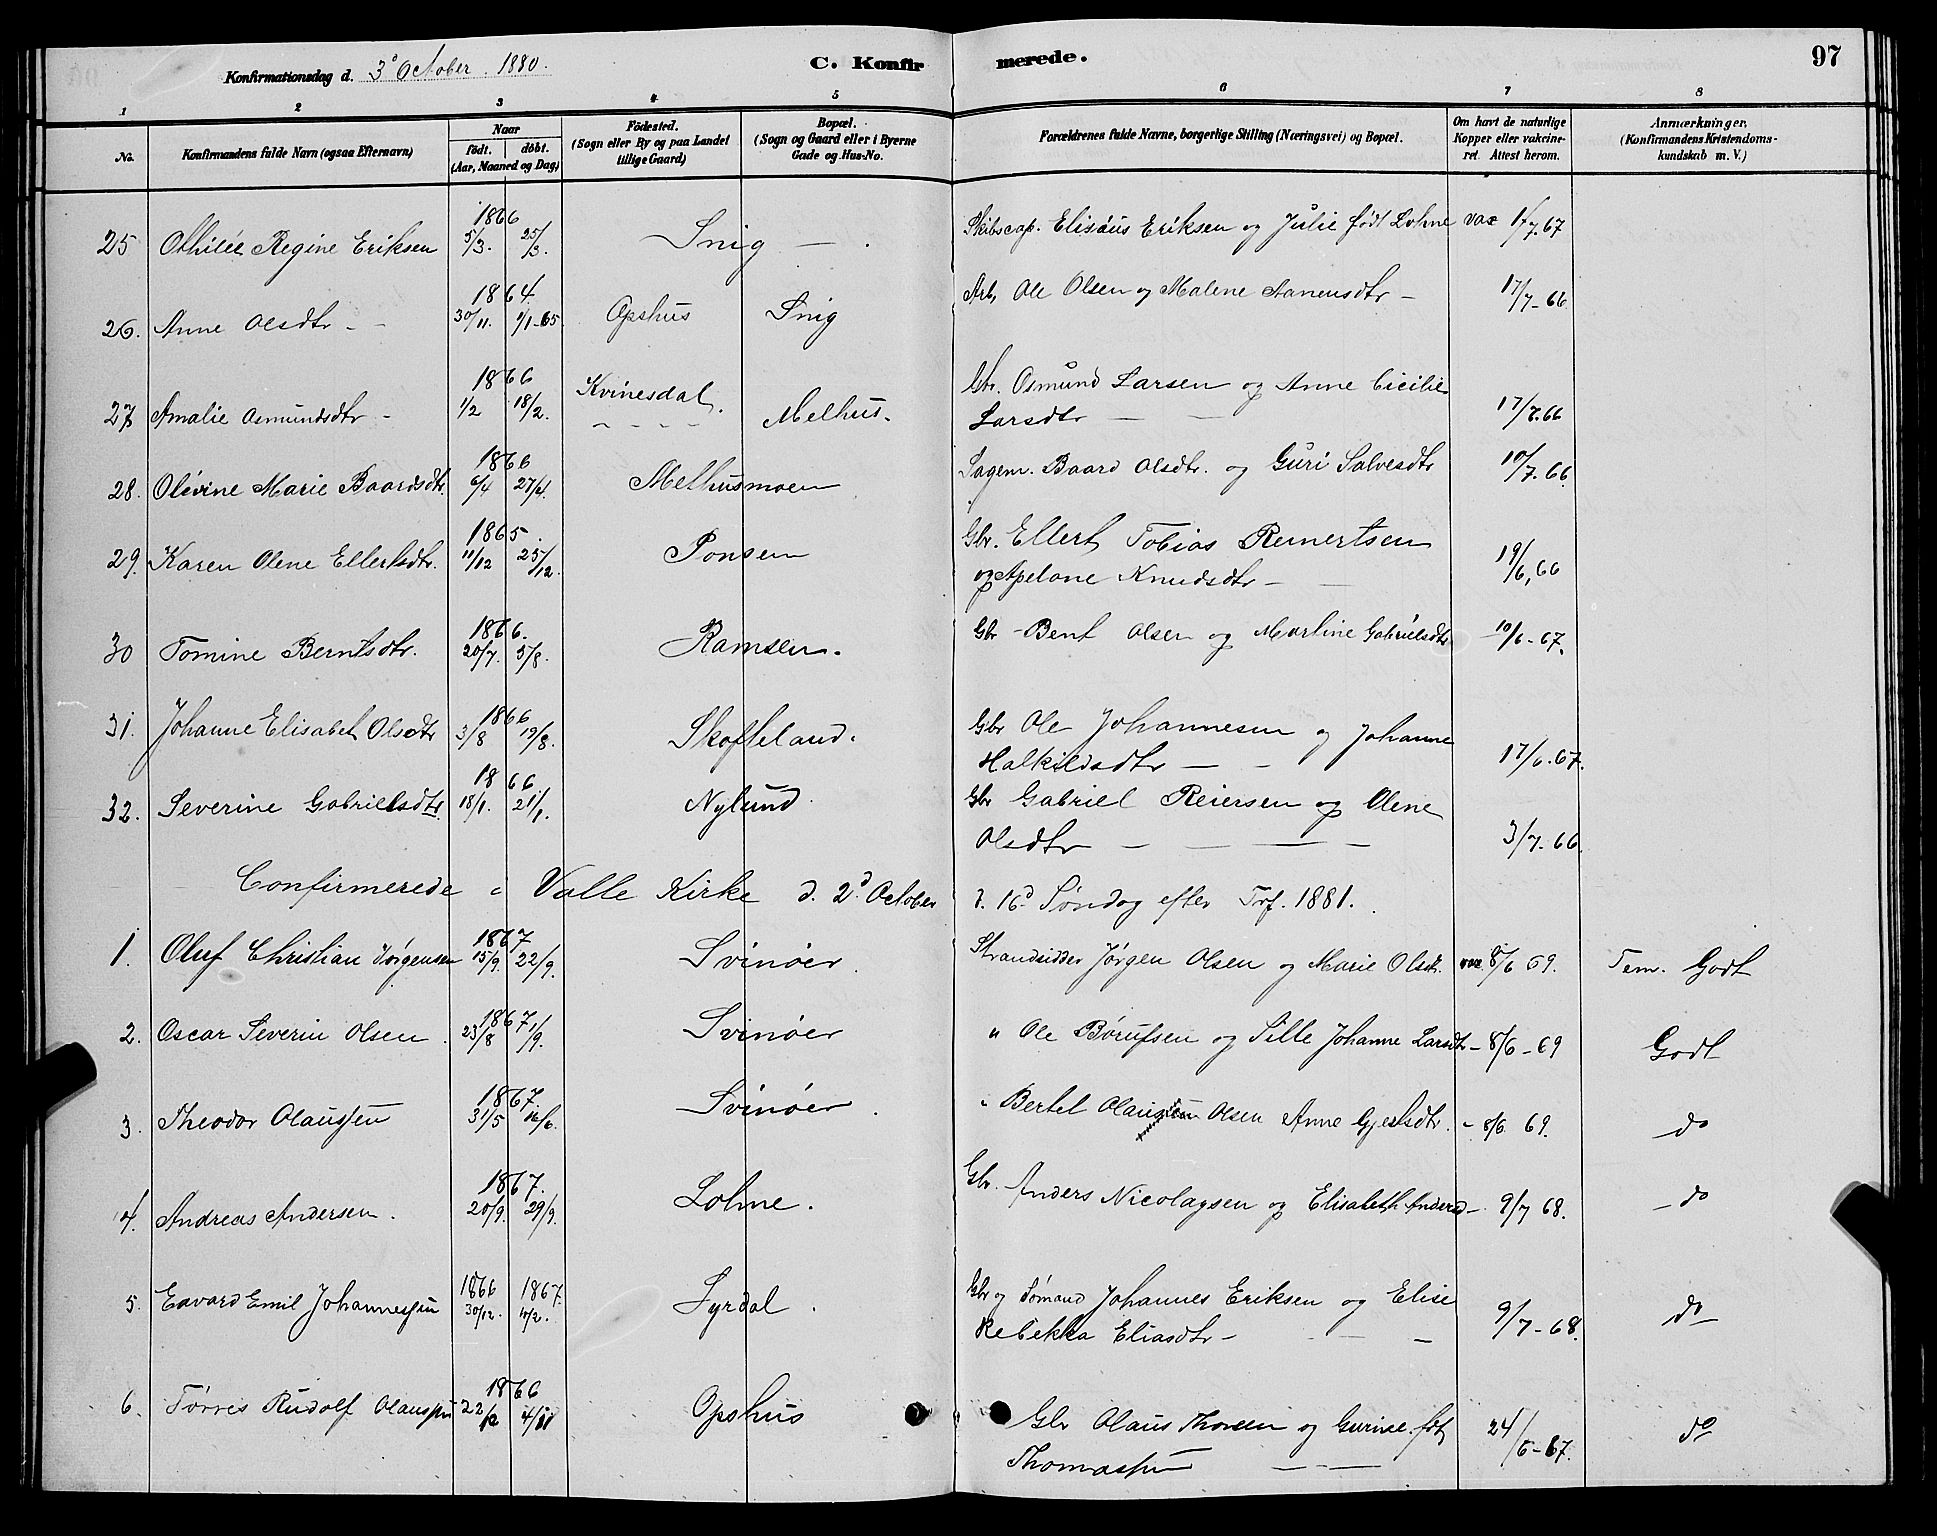 Konfirmationsdag d. 3 October 1880. C. Konfirmerede. 97
1 2 3 4 5 6 7 8
No. Konfirmandens fulde Navn (ogsaa Efternavn) Naar födt. döbt. (Aar, Maaned og Dag) Födested. (Sogn eller By og paa Landet tillige Gaard) Bopæl. (Sogn og Gaard eller i Byerne Gade og Hus-No. Forældrenes fulde Navne, borgerlige Stilling (Næringsvei) og Bopæl. Om havt de naturlige Kopper eller vakcineret. Attest herom. Anmærkninger. (Konfirmandens Kristendomskundskab m. V.)
25 Othilie Regine Eriksen 1866 5/3. 25/3. Snig — Skibscap. Elisæus Eriksen og Julie födt Lohne vac 17/7.67
26. Anne Olsdtr – – 1864. 30/11. 1/1-65. Opshus Snig Arb. Ole Olsen og Malene Aanensdtr – 17/7-66
27 Amalie Osmundsdtr – 1866 1/2 18/2. Kvinesdal. Melhus. Gbr. Osmund Larsen og Anne Cicilie
Larsdtr — — 17/7.66
28. Olivine Marie Baardsdtr. 1866 6/4 27/4. Melhusmoen Sagem. Baard Olsdtr. og Guri Salvesdtr 10/7.66
29. Karen Olene Ellertsdtr. 1865. 11/12 25/12. Ponsen Gbr. Ellert Tobias Reinertsen
og Apelone Knudsdtr — 19/6,66
30 Tomine Berntsdtr. 1866. 20/7. 5/8. Ramsen. Gbr – Bent Olsen og Martine Gabrielsdtr 10/6-67.
31. Johanne Elisabet Olsdtr 1866 3/8 19/8. Skofteland. Gbr Ole Johannesen og Johanne
Halkildsdtr — — 17/6.67.
32. Severine Gabrielsdtr. 1866 18/1. 21/1. Nylund Gbr Gabriel Reiersen og Olene
Olsdtr — — — — 3/7-66.
Confirmerede i Valle Kirke d. 2d October d. 16d Søndag efter Trf. 1881.
1. Oluf Christian Jörgensen 1867 15/9. 22/9. Svinöer. Strandsidder Jørgen Olsen og Marie Olsdtr. vac. 8/6 69. Tem. Godt
2. Oscar Severin Olsen. 1867 23/8 1/9. Svinöer " Ole Börufsen og Sille Johanne Larsdtr – 8/6-69 Godt
3. Theodor Olaussen 1867. 31/5 16/6. Svinöer. " Bertel Olaus Olsen Anne Gjertsdtr. – 8/6 69. do
4. Andreas Andersen. 1867. 20/9. 29/9. Lohne. Gbr. Anders Nicolaysen og Elisabeth Andersd – 9/7 68. do
5. Edvard Emil Johannessen 1866 30/12. 1867. 4/2. Syrdal. Gbr og Sømand Johannes Eriksen og Elise
Rebekka Eliasdtr – — — 9/7-68. do
6. Törres Rudolf Olaussen 1866 22/12 4/11 Opshus Gbr Olaus Thorsen og Gurine fdt
Thomassen — — — 24/6-67. do